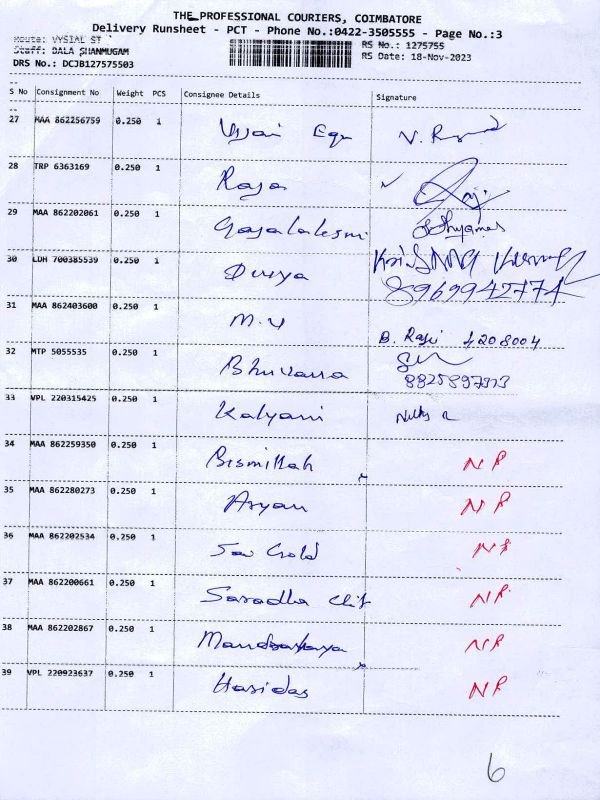 THE PROFESSIONAL COURIERS, COIMBATORE
Delivery Runsheet - PCT - Phone No.:0422-3505555 - Page No.:3
Route: VYSIAL ST RS No.: 1275755
Staff: BALA SHANMUGAM RS Date: 18-Nov-2023
DRS No.: DCJB127575503
S No Consignment No Weight PCS Consignee Details Signature
27 MAA 862256759 0.250 1 V.
28 TRP 6363169 0.250 1 Raja Raji
29 MAA 862202061 0.250 1 Gajalakshmi
30 LDH 700385539 0.250 1 Durga
31 MAA 862403600 0.250 1 M.V B. Raji 4208004
32 MTP 5055535 0.250 1 Bhuvana
33 VPL 220315425 0.250 1 Kalyani
34 MAA 862259350 0.250 1 Bismillah NR
35 MAA 862280273 0.250 1 Aryan NR
36 MAA 862202534 0.250 1 Sai Gold NR
37 MAA 862200661 0.250 1 Saradha Chit NR
38 MAA 862202867 0.250 1 NR
39 VPL 220923637 0.250 1 Haridas NR
6